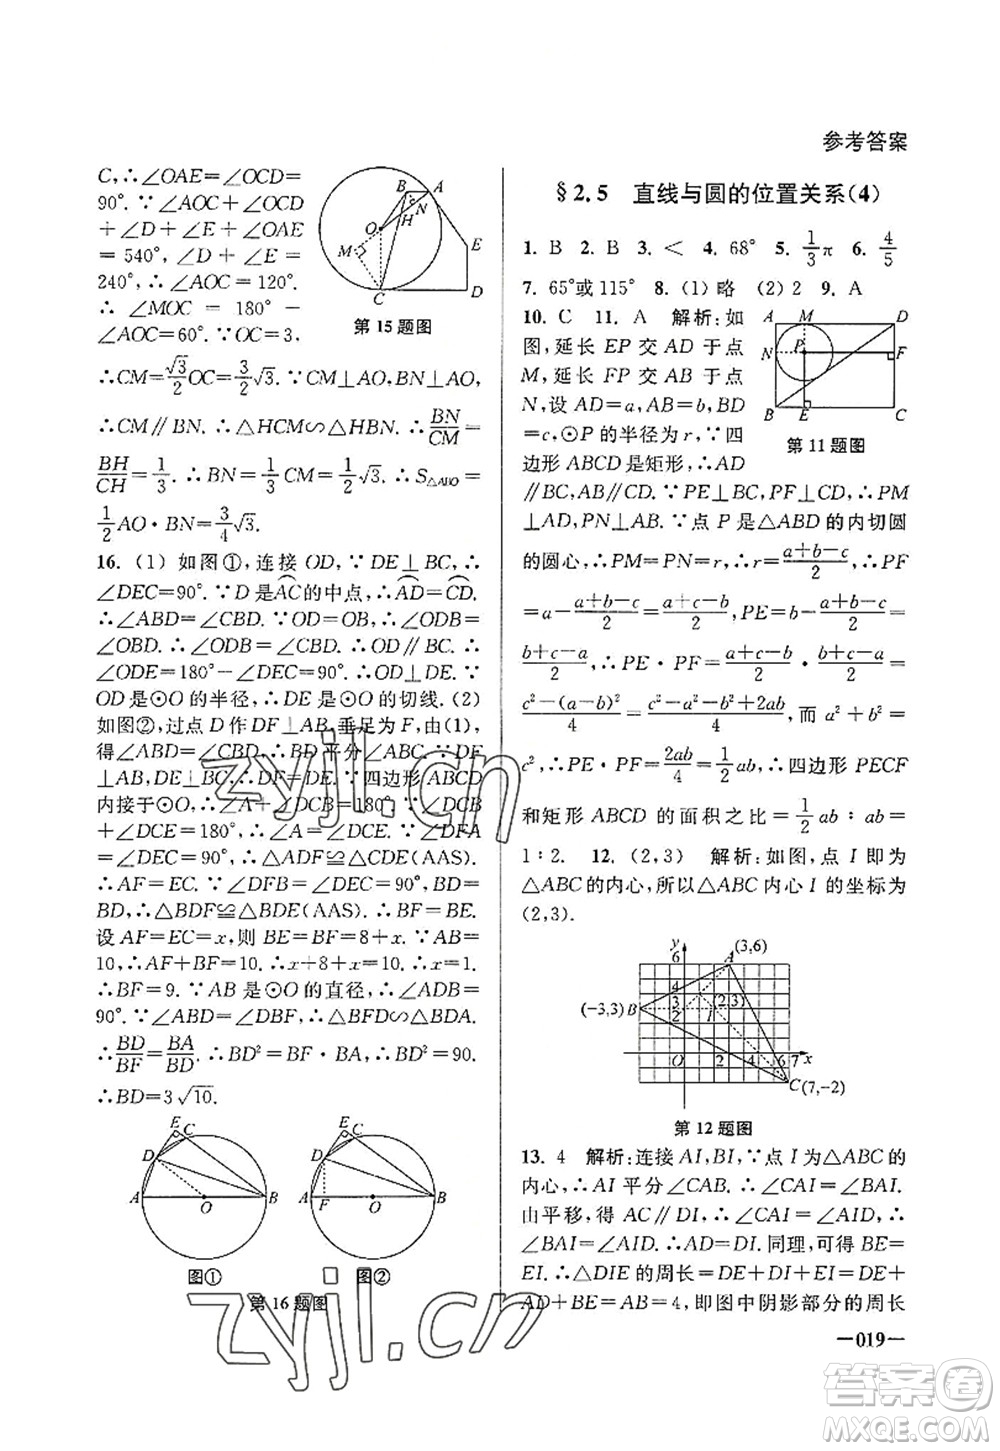 参考答案
C,∴∠OAE=∠OCD=
90°.∵∠AOC+∠OCD
+∠D+∠E+∠OAE
=540°,∠D+∠E=
240°,∴∠AOC=120°.
∴∠MOC=180°-
∠AOC=60°.∵OC=3,
∴CM=√3/2 OC=3/2 √3.∵CM⊥AO,BN⊥AO,
∴CM∥BN.∴△HCM∽△HBN.∴BN/CM=
BH/CH=1/3.∴BN=1/3 CM=√3/2.∴S△ABO=
1/2 AO·BN=3/4 √3.
B A
O H N
M E
C D
第15题图
16.(1)如图①,连接OD,∵DE⊥BC,∴
∠DEC=90°.∵D是AC的中点,∴AD=CD.
∴∠ABD=∠CBD.∵OD=OB,∴∠ODB=
∠OBD.∴∠ODB=∠CBD.∴OD∥BC.∴
∠ODE=180°-∠DEC=90°.∴OD⊥DE.∵
OD是⊙O的半径,∴DE是⊙O的切线.(2)
如图②,过点D作DF⊥AB,垂足为F,由(1),
得∠ABD=∠CBD,∴BD平分∠ABC.∵DF
⊥AB,DE⊥BC,∴DF=DE.∵四边形ABCD
内接于⊙O,∴∠A+∠DCB=180°.∵∠DCB
+∠DCE=180°,∴∠A=∠DCE.∵∠DFA
=∠DEC=90°,∴△ADF≌△CDE(AAS).
∴AF=EC.∵∠DFB=∠DEC=90°,BD=
BD,∴△BDF≌△BDE(AAS).∴BF=BE.
设AF=EC=x,则BE=BF=8+x.∵AB=
10,∴AF+BF=10.∴x+8+x=10.∴x=1.
∴BF=9.∵AB是⊙O的直径,∴∠ADB=
90°.∵∠ABD=∠ABD,∴△BDF∽△BDA.
∴BD/BF=BA/BD.∴BD²=BF·BA.∴BD²=90.
∴BD=3√10.
E C
D
A O B
图①
E C
D
A F O B
图②
第16题图
§2.5 直线与圆的位置关系(4)
1. B 2. B 3. < 4. 68° 5. 1/3 π 6. 4/5
7. 65°或115° 8. (1)略 (2)2 9. A
10. C 11. A 解析:如
图,延长EP交AD于点
M,延长FP交AB于点
N,设AD=a,AB=b,BD
=c,⊙P的半径为r,∵四
边形ABCD是矩形,∴AD
A M D
N P F
B E C
第11题图
∥BC,AB∥CD.∵PE⊥BC,PF⊥CD,∴PM
⊥AD,PN⊥AB.∵点P是△ABD的内切圆
的圆心,∴PM=PN=r,∴r=(a+b-c)/2,∴PF
=a-(a+b-c)/2=(a+c-b)/2,PE=b-(a+b-c)/2=
(b+c-a)/2,∴PE·PF=(a+c-b)/2·(b+c-a)/2=
(c²-(a-b)²)/4=(c²-a²-b²+2ab)/4,而a²+b²=
c²,∴PE·PF=2ab/4=1/2 ab,∴四边形PECF
和矩形ABCD的面积之比=1/2 ab∶ab=
1∶2. 12. (2,3) 解析:如图,点I即为
△ABC的内心,所以△ABC内心I的坐标为
(2,3).
y
6
A (3,6)
4
(-3,3) B 3 (2,3)
2 I
O 2 4 6 7 x
C(7,-2)
第12题图
13. 4 解析:连接AI,BI,∵点I为△ABC的
内心,∴AI平分∠CAB.∴∠CAI=∠BAI.
由平移,得AC∥DI,∴∠CAI=∠AID,∴
∠BAI=∠AID.∴AD=DI.同理,可得BE=
EI.∴△DIE的周长=DE+DI+EI=DE+
AD+BE=AB=4,即图中阴影部分的周长
—019—
zyjl.cn
zyjl.cn
答案圈
MXQE.COM